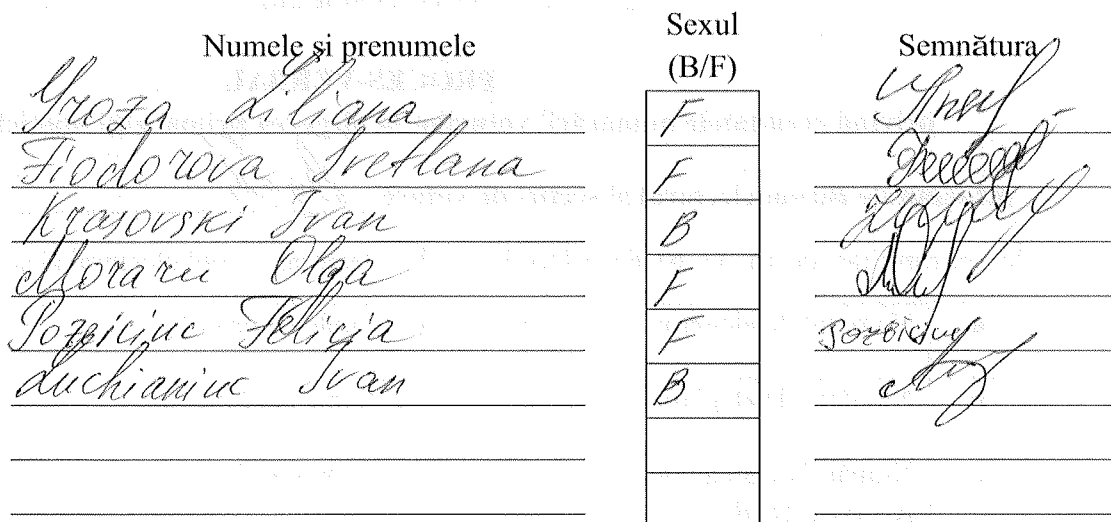 Numele și prenumele Sexul (B/F) Semnătura
Groza Liliana F
Fiodorova Svetlana F
Krasovski Ivan B
Moraru Olga F
Pozbiciuc Felicia F Pozbiciuc
Luchianiuc Ivan B